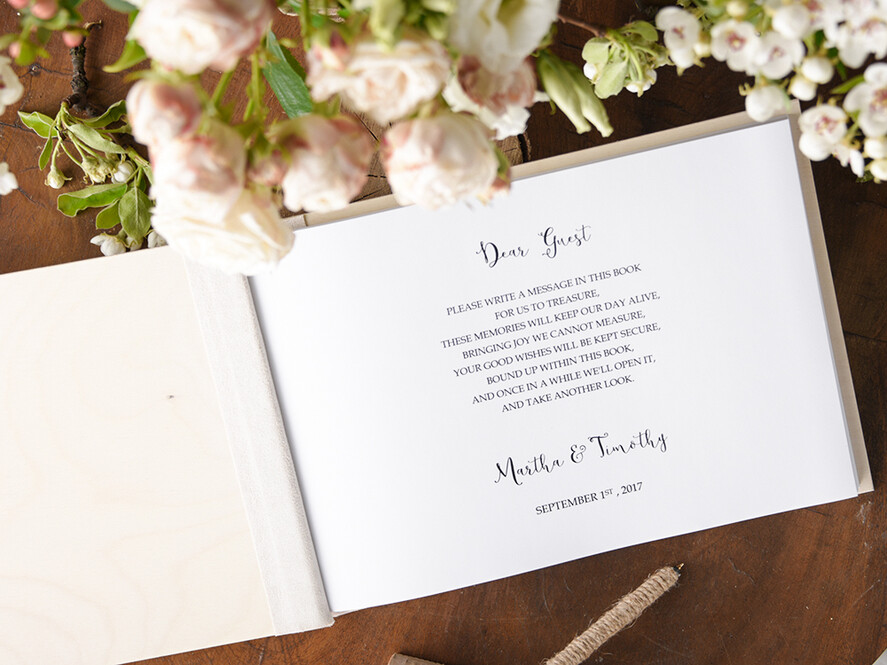 Dear Guest
PLEASE WRITE A MESSAGE IN THIS BOOK
FOR US TO TREASURE,
THESE MEMORIES WILL KEEP OUR DAY ALIVE,
BRINGING JOY WE CANNOT MEASURE,
YOUR GOOD WISHES WILL BE KEPT SECURE,
BOUND UP WITHIN THIS BOOK,
AND ONCE IN A WHILE WE'LL OPEN IT,
AND TAKE ANOTHER LOOK.
Martha & Timothy
SEPTEMBER 1ST , 2017